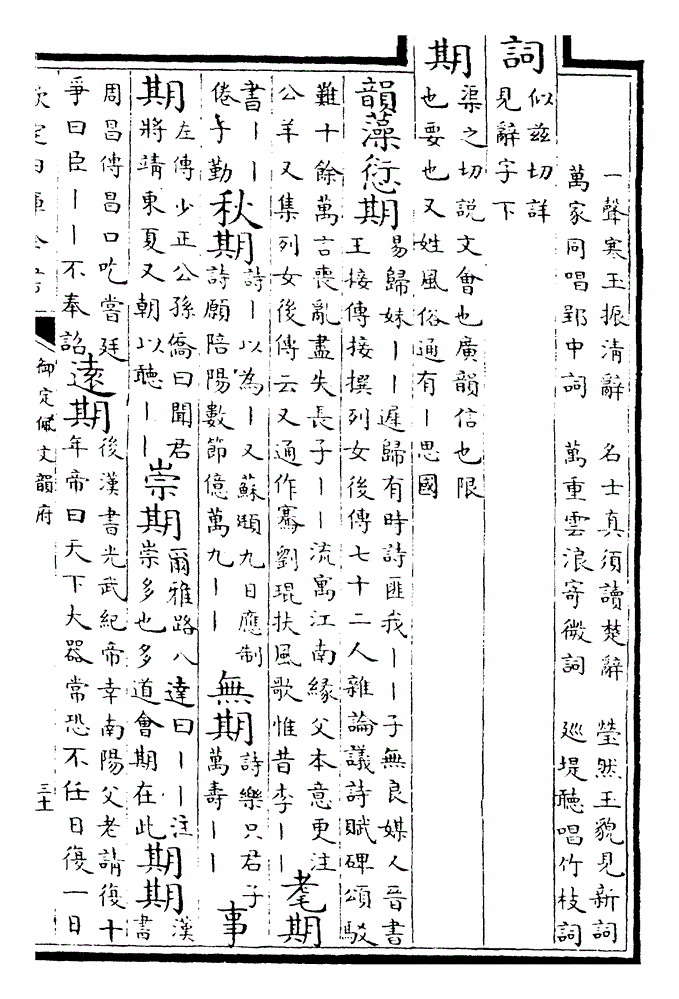 一聲寒玉振清辭　名士真須讀楚辭　瑩然玉貌見新詞
萬家同唱郢中詞　萬重雲浪寄微詞　廵堤聽唱竹枝詞
詞
似兹切詳
見辭字下
期
渠之切説文會也廣韻信也限
也要也又姓風俗通有丨思國
韻藻愆期
易歸妹丨丨遲歸有時詩匪我丨丨子無良媒人晉書
王接傳接撰列女後傳七十二人雜論議詩賦碑頌駁
難十餘萬言喪亂盡失長子丨丨流寓江南緣父本意更注
公羊又集列女後傳云又通作騫劉琨扶風歌惟昔李丨丨
耄期
書丨丨
倦于勤
秋期
詩丨以為丨又蘇頲九日應制
詩願陪陽數節億萬九丨丨
無期
詩樂只君子
萬壽丨丨
事
期
左傳少正公孫僑曰聞君
將靖東夏又朝以聽丨丨
崇期
爾雅路八達曰丨丨注
崇多也多道會期在此
期期
漢
書
周昌傳昌口吃嘗廷
爭曰臣丨丨不奉詔
遠期
後漢書光武紀帝幸南陽父老請復十
年帝曰天下大器常恐不任日復一日
御定佩文韻府